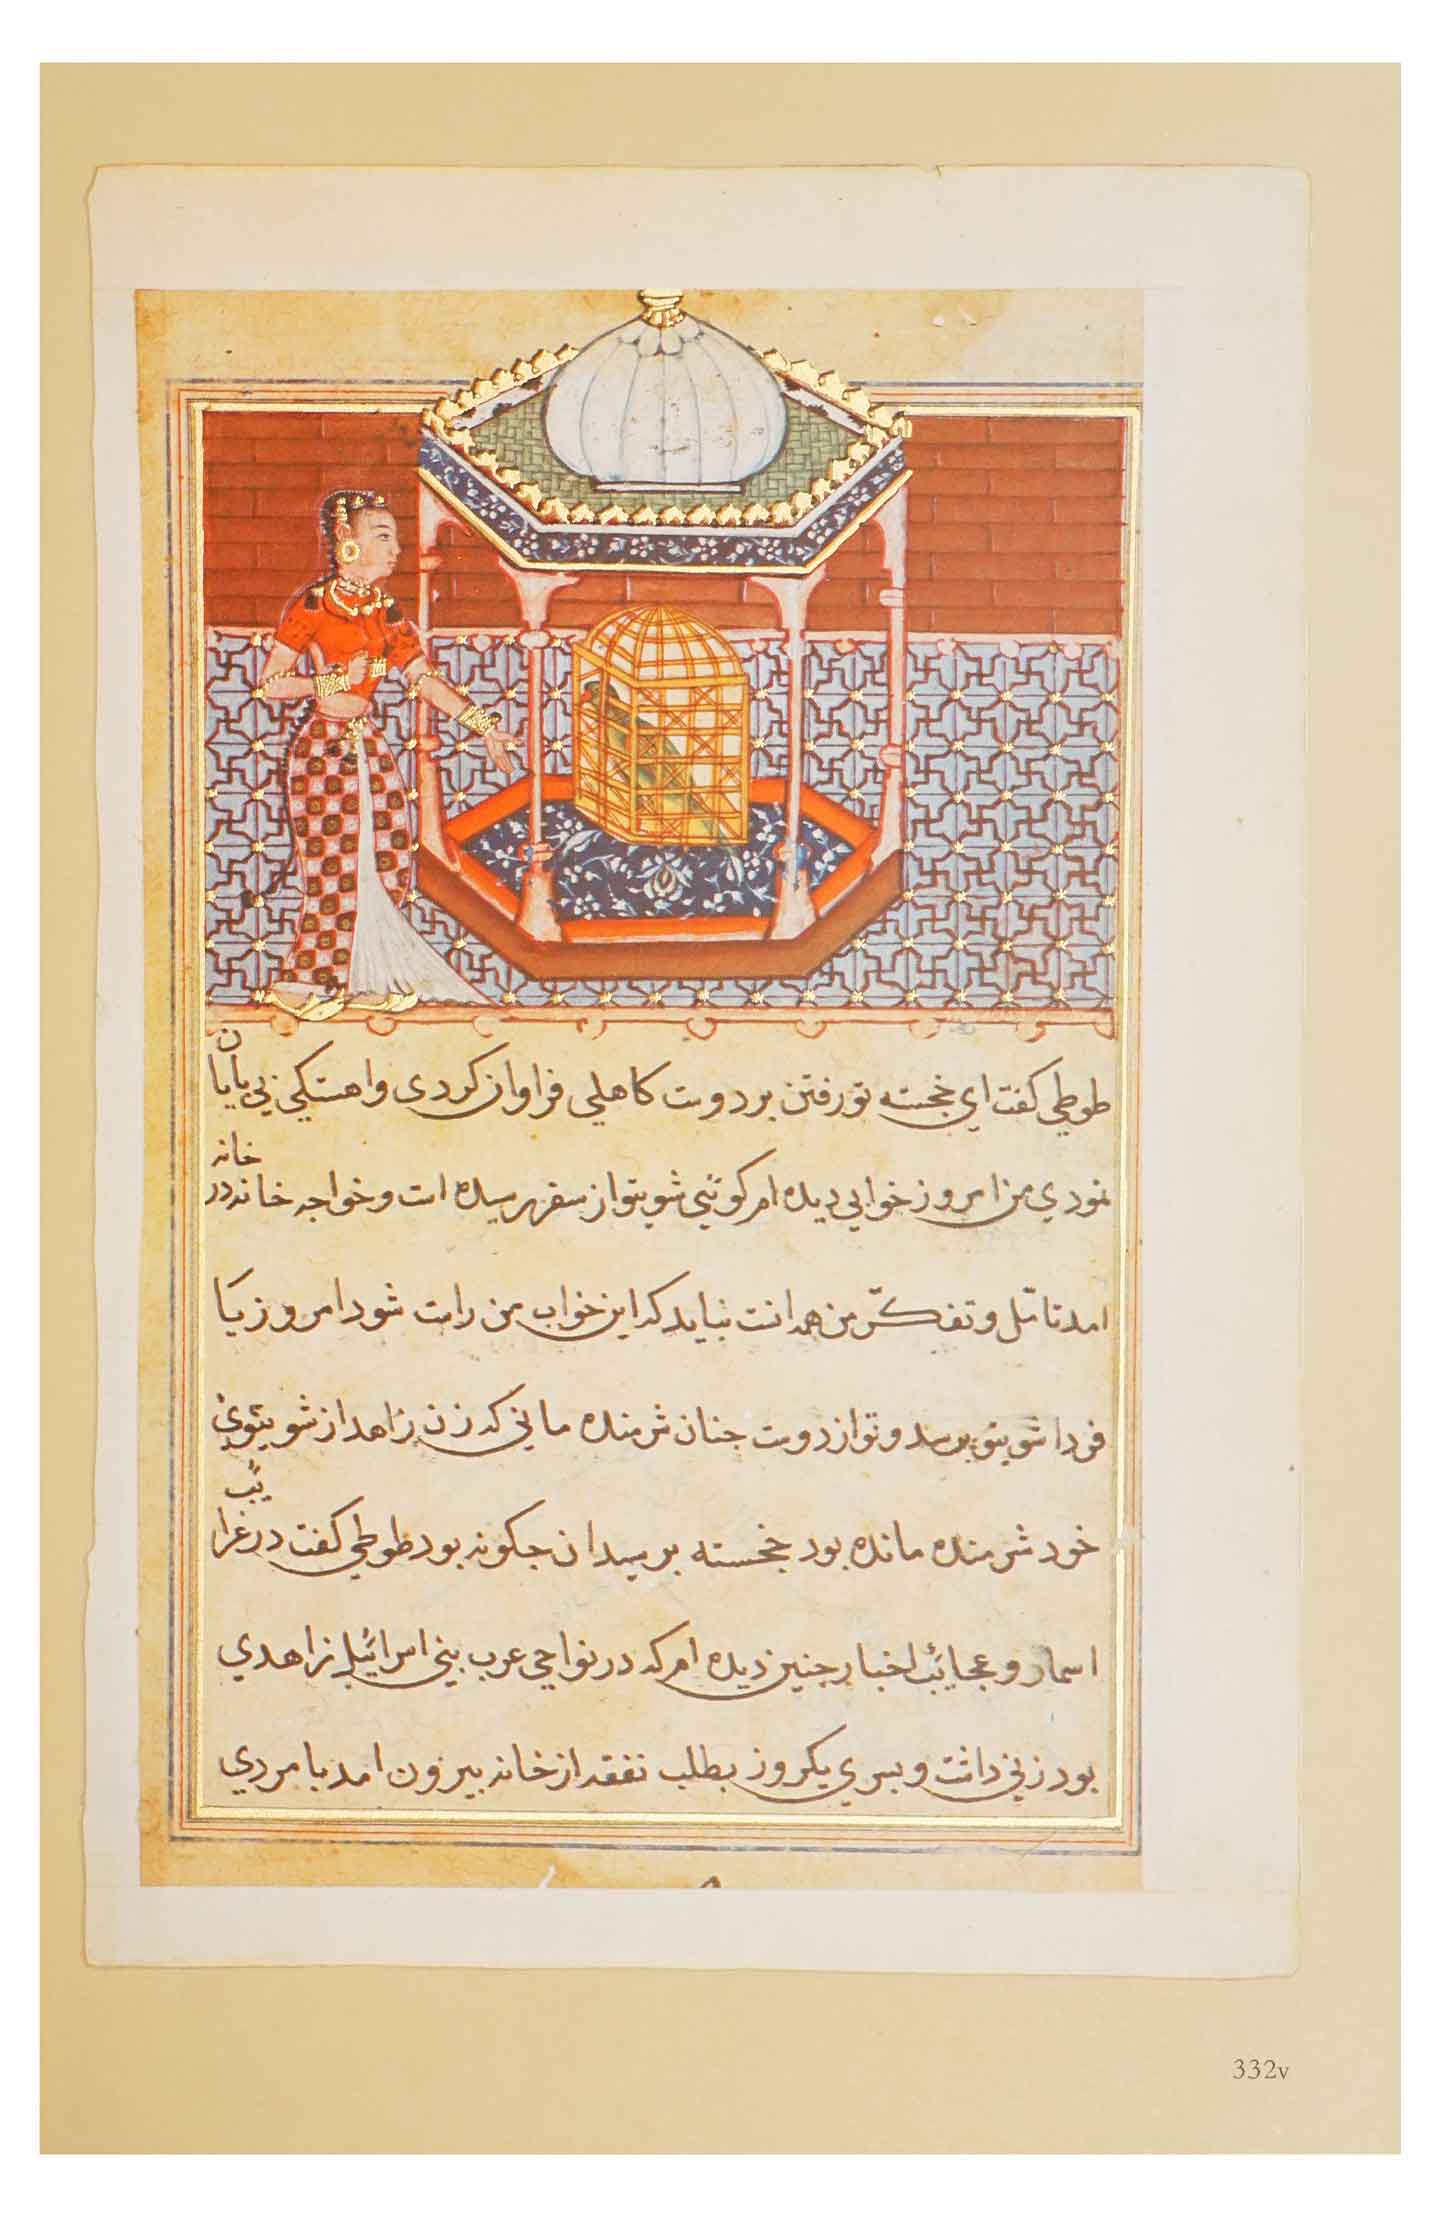 طوطي كفت اي خجسته تو رفتن بر دوست كاهلي فراوان كردي و اهستكي بي پايان
نمودي من امروز خوابي ديده ام كوئي شوي تو از سفر رسيده است و خواجه خانه در خانه
امد تامّل و تفكّر من همه انست نبايد كه اين خواب من راست شود امروز يا
فردا شوي تو برسد و تو از دوست جنان شرمنده ماني كه زن زاهد از شوي
خود شرمنده مانده بود خجسته برسيد ان جكونه بود طوطي كفت در غرائب
اسمار و عجائب اخبار جنين ديده ام كه در نواحي عرب بني اسرائيل زاهدي
بود زني داشت و بسري يكروز بطلب نفقه از خانه بيرون امد با مردي
332v